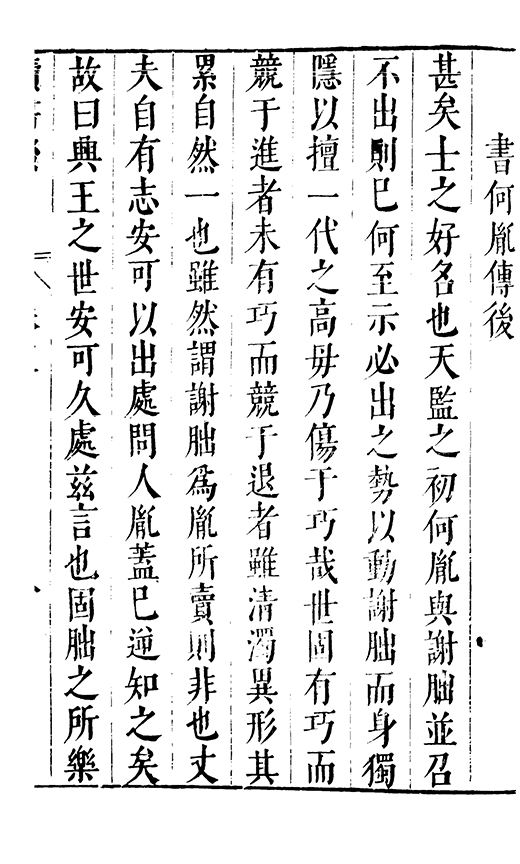 書何胤傳後
甚矣士之好名也天監之初何胤與謝朏並召
不出則已何至示必出之勢以動謝朏而身獨
隱以擅一代之高毋乃傷于巧哉世固有巧而
競于進者未有巧而競于退者雖清濁異形其
累自然一也雖然謂謝朏為胤所賣則非也丈
夫自有志安可以出處問人胤蓋已逆知之矣
故曰興王之世安可久處茲言也固朏之所樂